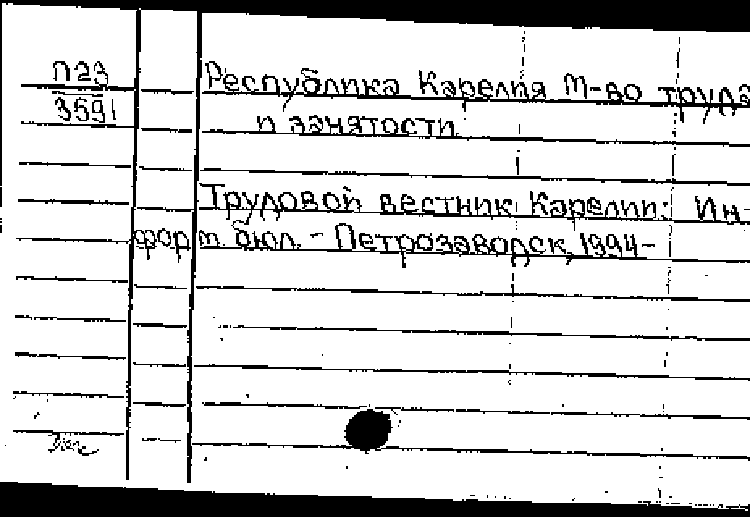 П23
3591
Республика Карелия М-во труда
и занятости
Трудовой вестник Карелии: Ин-
форм. бюл. - Петрозаводск, 1994-